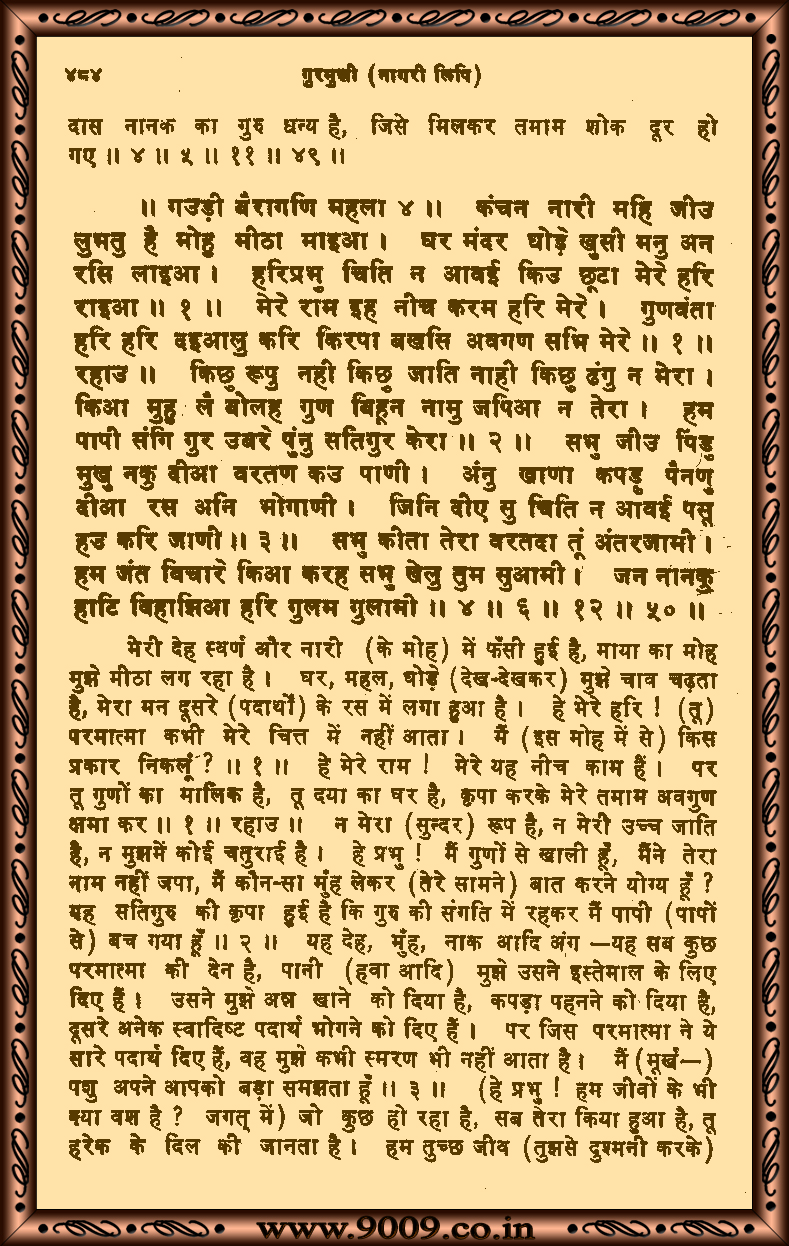 ४८४ गुरमुखी (नागरी लिपि)
दास नानक का गुरु धन्य है, जिसे मिलकर तमाम शोक दूर हो
गए ॥ ४ ॥ ५ ॥ ११ ॥ ४९ ॥
॥ गउड़ी बैरागणि महला ४ ॥ कंचन नारी महि जीउ
लुभतु है मोहु मीठा माइआ । घर मंदर घोड़े खुसी मनु अन
रसि लाइआ । हरिप्रभु चिति न आवई किउ छूटा मेरे हरि
राइआ ॥ १ ॥ मेरे राम इह नीच करम हरि मेरे । गुणवंता
हरि हरि दइआलु करि किरपा बखसि अवगण सभि मेरे ॥ १ ॥
रहाउ ॥ किछु रूपु नही किछु जाति नाही किछु ढंगु न मेरा ।
किआ मुहु लै बोलह गुण बिहून नामु जपिआ न तेरा । हम
पापी संगि गुर उबरे पुंनु सतिगुर केरा ॥ २ ॥ सभु जीउ पिंडु
मुखु नकु दीआ वरतण कउ पाणी । अंनु खाणा कपड़ु पैनणु
दीआ रस अनि भोगाणी । जिनि दीए सु चिति न आवई पसू
हउ करि जाणी ॥ ३ ॥ सभु कीता तेरा वरतदा तूं अंतरजामी ।
हम जंत विचारे किआ करह सभु खेलु तुम सुआमी । जन नानकु
हाटि विहाझिआ हरि गुलम गुलामी ॥ ४ ॥ ६ ॥ १२ ॥ ५० ॥
मेरी देह स्वर्ण और नारी (के मोह) में फँसी हुई है, माया का मोह
मुझे मीठा लग रहा है । घर, महल, घोड़े (देख-देखकर) मुझे चाव चढ़ता
है, मेरा मन दूसरे (पदार्थों) के रस में लगा हुआ है । हे मेरे हरि ! (तू)
परमात्मा कभी मेरे चित्त में नहीं आता । मैं (इस मोह में से) किस
प्रकार निकलूं ? ॥ १ ॥ हे मेरे राम ! मेरे यह नीच काम हैं । पर
तू गुणों का मालिक है, तू दया का घर है, कृपा करके मेरे तमाम अवगुण
क्षमा कर ॥ १ ॥ रहाउ ॥ न मेरा (सुन्दर) रूप है, न मेरी उच्च जाति
है, न मुझमें कोई चतुराई है । हे प्रभु ! मैं गुणों से खाली हूँ, मैंने तेरा
नाम नहीं जपा, मैं कौन-सा मुंह लेकर (तेरे सामने) बात करने योग्य हूँ ?
यह सतिगुरु की कृपा हुई है कि गुरु की संगति में रहकर मैं पापी (पापों
से) बच गया हूँ ॥ २ ॥ यह देह, मुँह, नाक आदि अंग —यह सब कुछ
परमात्मा की देन है, पानी (हवा आदि) मुझे उसने इस्तेमाल के लिए
दिए हैं । उसने मुझे अन्न खाने को दिया है, कपड़ा पहनने को दिया है,
दूसरे अनेक स्वादिष्ट पदार्थ भोगने को दिए हैं । पर जिस परमात्मा ने ये
सारे पदार्थ दिए हैं, वह मुझे कभी स्मरण भी नहीं आता है । मैं (मूर्ख—)
पशु अपने आपको बड़ा समझता हूँ ॥ ३ ॥ (हे प्रभु ! हम जीवों के भी
क्या वश है ? जगत् में) जो कुछ हो रहा है, सब तेरा किया हुआ है, तू
हरेक के दिल की जानता है । हम तुच्छ जीव (तुझसे दुश्मनी करके)
www.9009.co.in